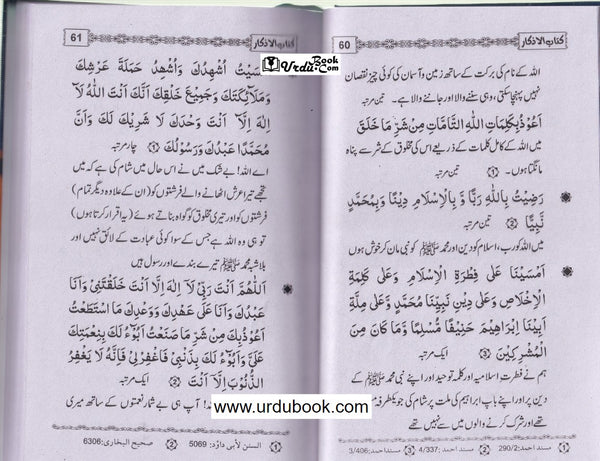 كتاب الاذكار
60
اللہ کے نام کی برکت کے ساتھ زمین و آسمان کی کوئی چیز نقصان
نہیں پہنچا سکتی، وہی سننے والا اور جاننے والا ہے۔ تین مرتبہ
اَعُوْذُ بِكَلِمَاتِ اللّٰهِ التَّامَّاتِ مِنْ شَرِّ مَا خَلَقَ
میں اللہ کے کامل کلمات کے ذریعے اس کی مخلوق کے شر سے پناہ
مانگتا ہوں۔ ① تین مرتبہ
رَضِيْتُ بِاللّٰهِ رَبًّا وَّ بِالْاِسْلَامِ دِيْنًا وَبِمُحَمَّدٍ
نَّبِيًّا ② تین مرتبہ
میں اللہ کو رب، اسلام کو دین اور محمد ﷺ کو نبی مان کر خوش ہوں
اَمْسَيْنَا عَلٰى فِطْرَةِ الْاِسْلَامِ وَعَلٰى كَلِمَةِ
الْاِخْلَاصِ وَعَلٰى دِيْنِ نَبِيِّنَا مُحَمَّدٍ وَّعَلٰى مِلَّةِ
اَبِيْنَا اِبْرَاهِيْمَ حَنِيْفًا مُّسْلِمًا وَّمَا كَانَ مِنَ
الْمُشْرِكِيْنَ ③ ایک مرتبہ
ہم نے فطرتِ اسلامیہ اور کلمہ توحید اور اپنے نبی محمد ﷺ کے
دین پر اور اپنے باپ ابراہیم کی ملت پر شام کی جو یکطرفہ
تھے اور شرک کرنے والوں میں سے نہیں تھے
① مسند احمد: 290/2 ② مسند احمد: 4/337 ③ مسند احمد: 3/406
كتاب الاذكار
61
اُشْهِدُكَ وَاُشْهِدُ حَمَلَةَ عَرْشِكَ
وَمَلَآئِكَتَكَ وَجَمِيْعَ خَلْقِكَ اَنَّكَ اَنْتَ اللّٰهُ لَا
اِلٰهَ اِلَّا اَنْتَ وَحْدَكَ لَا شَرِيْكَ لَكَ وَاَنَّ
مُحَمَّدًا عَبْدُكَ وَرَسُوْلُكَ ① چار مرتبہ
اے اللہ! بے شک میں نے اس حال میں شام کی ہے کہ میں
تجھے تیرا عرش اٹھانے والے فرشتوں کو (ان کے علاوہ دیگر تمام)
فرشتوں کو اور تیری مخلوق کو گواہ بناتے ہوئے (یہ اقرار کرتا ہوں)
تو ہی وہ اللہ ہے جس کے سوا کوئی عبادت کے لائق نہیں اور
بلاشبہ محمد ﷺ تیرے بندے اور رسول ہیں
اَللّٰهُمَّ اَنْتَ رَبِّيْ لَآ اِلٰهَ اِلَّا اَنْتَ خَلَقْتَنِيْ وَاَنَا
عَبْدُكَ وَاَنَا عَلٰى عَهْدِكَ وَوَعْدِكَ مَا اسْتَطَعْتُ
اَعُوْذُ بِكَ مِنْ شَرِّ مَا صَنَعْتُ اَبُوْءُ لَكَ بِنِعْمَتِكَ
عَلَيَّ وَاَبُوْءُ لَكَ بِذَنْبِيْ فَاغْفِرْلِيْ فَاِنَّهٗ لَا يَغْفِرُ
الذُّنُوْبَ اِلَّا اَنْتَ ② ایک مرتبہ
! آپ ہی بے شمار نعمتوں کے ساتھ میری
① السنن لأبي داؤد: 5069 ② صحيح البخاري: 6306
Urdu Book
.Com
www.urdubook.com